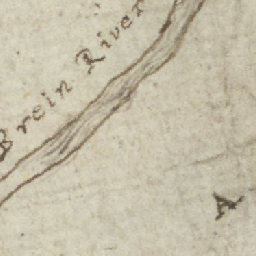 Brein River
A